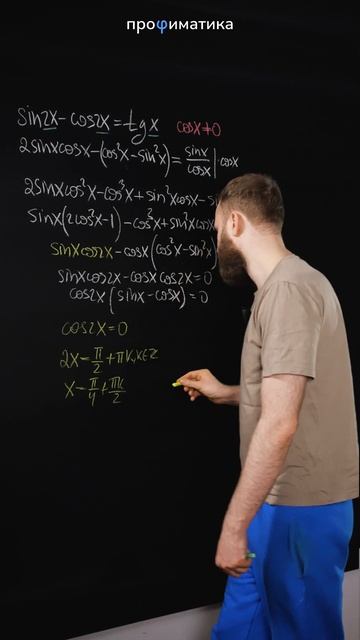 профиматика
sin2x - cos2x = tg x    cosx ≠ 0
2sinxcosx - (cos²x - sin²x) = sinx/cosx | · cosx
2sinxcos²x - cos³x + sin²xcosx - si
sinx(2cos²x - 1) - cos³x + sin²xcosx
sinxcos2x - cosx(cos²x - sin²x)
sinxcos2x - cosxcos2x = 0
cos2x(sinx - cosx) = 0
cos2x = 0
2x = π/2 + πk, k∈Z
x = π/4 + πk/2